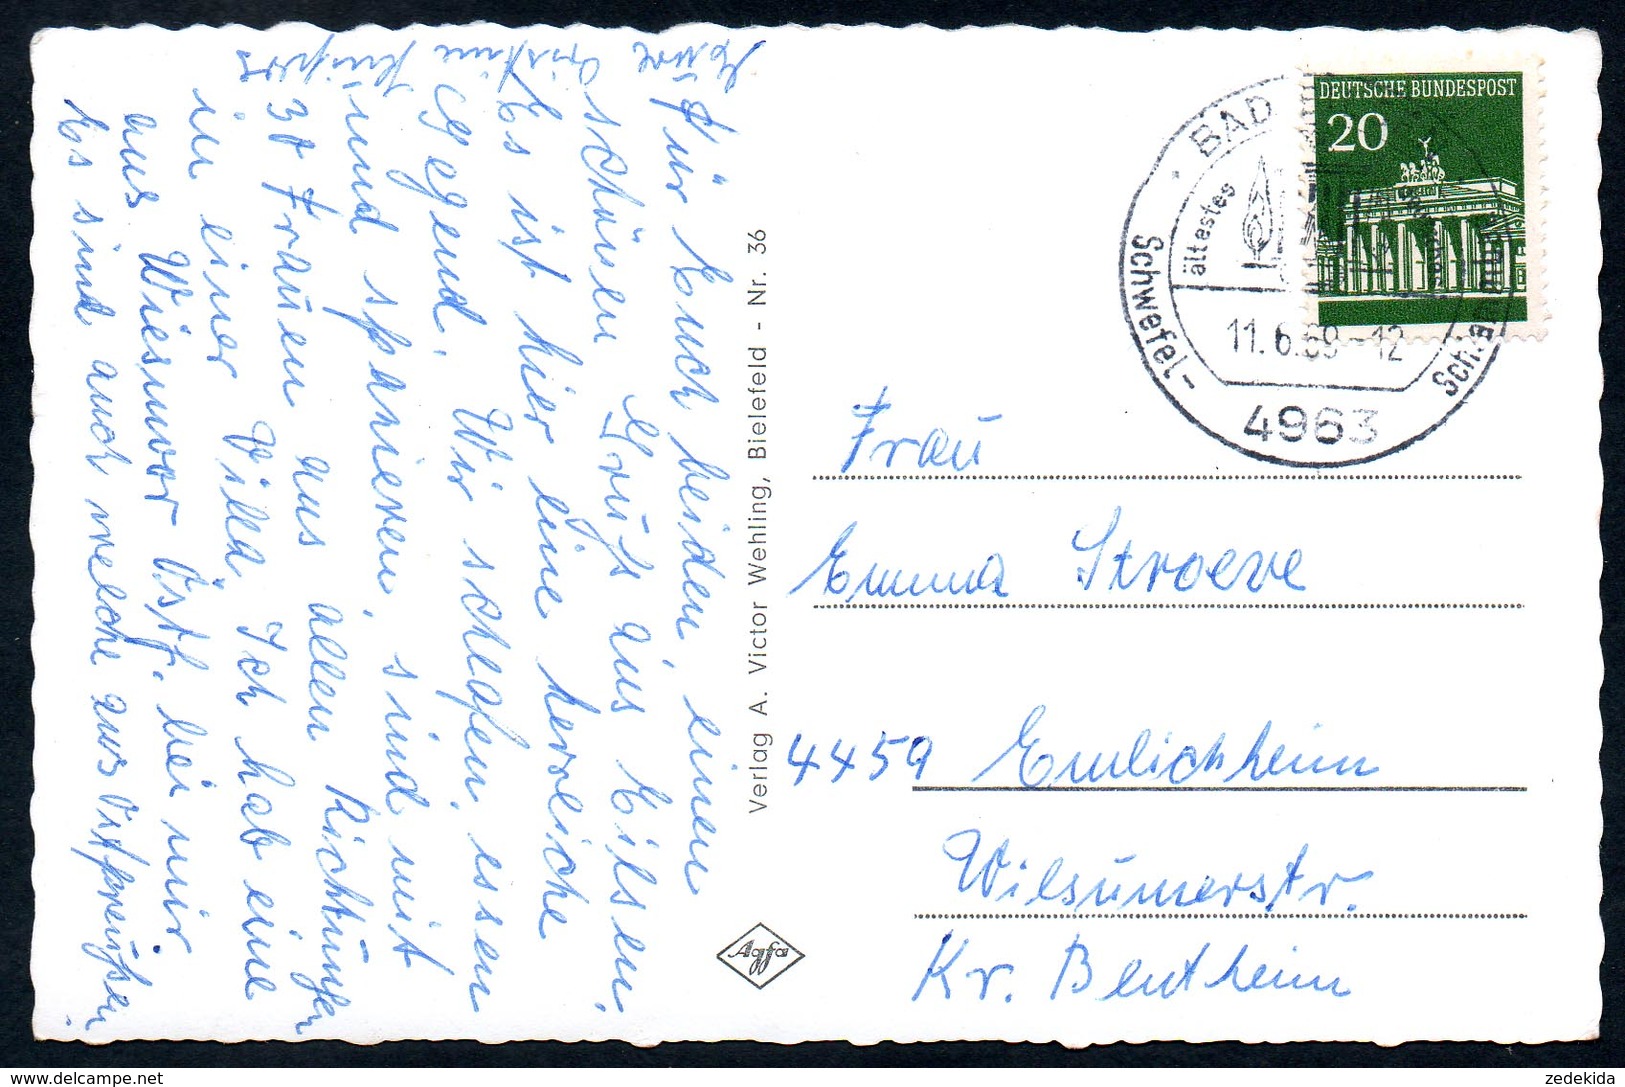 Für Euch beiden, einen
schönen Gruß aus Eilsen.
Es ist hier eine herrliche
Gegend. Wir schlafen, essen
und spazieren, sind mit
37 Frauen aus allen Richtungen
in einer Villa. Ich hab eine
aus Wiesmoor Ostf. bei mir
Es sind auch welche aus Ostpreußen.
Verlag A. Victor Wehling, Bielefeld - Nr. 36
Agfa
DEUTSCHE BUNDESPOST
20
BAD
ältestes
Schwefel-
11.6.69-12
4963
Frau
Emma Stroeve
4459 Emlichheim
Wilsumerstr.
Kr. Bentheim
zedekida